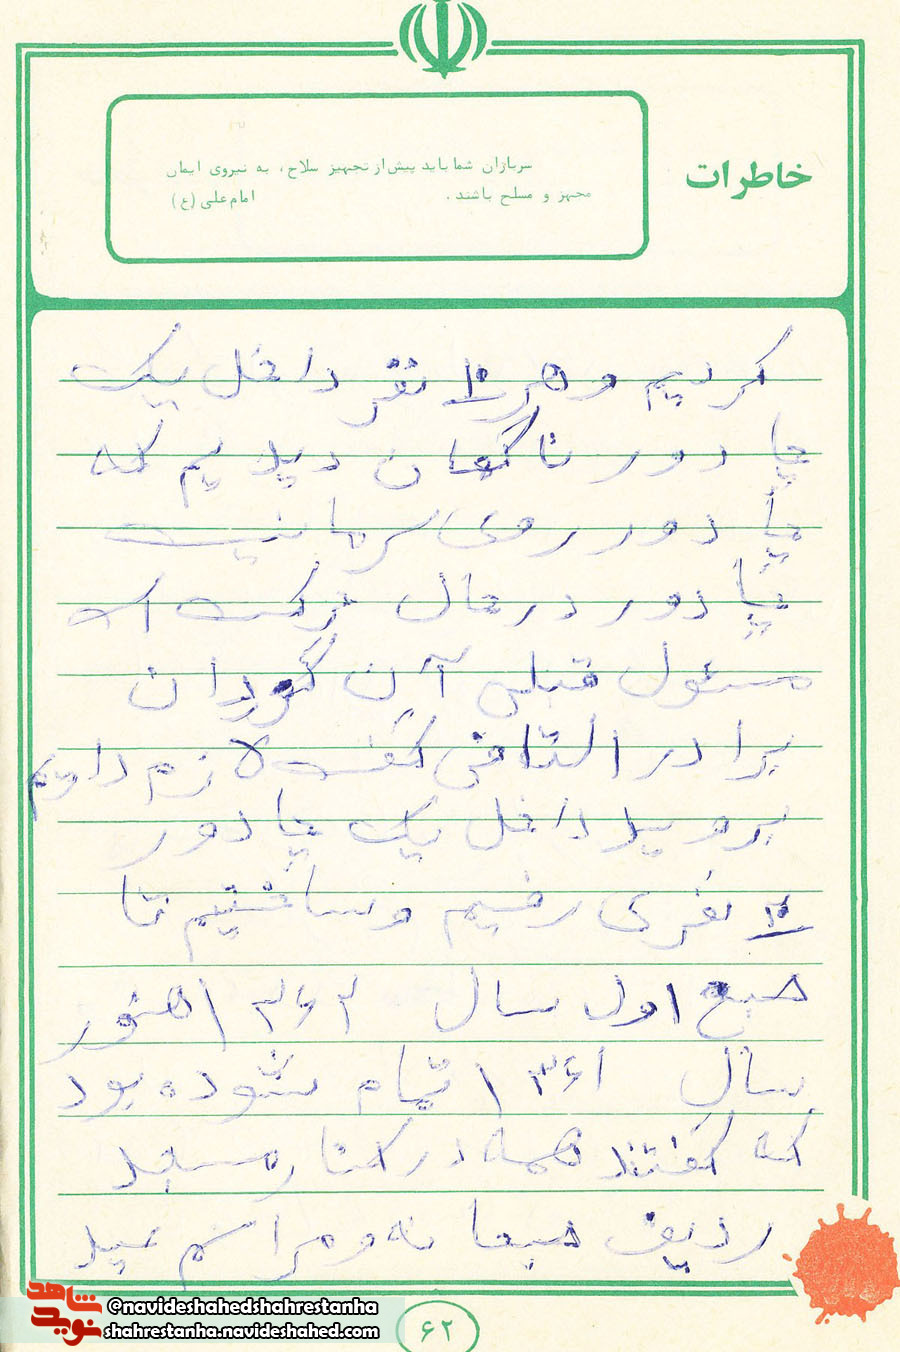 خاطرات
سربازان شما باید پیش از تجهیز سلاح، به نیروی ایمان
مجهز و مسلح باشند.
امام علی (ع)
کردیم و هر ۱۰ نفر داخل یک
چادور ناگهان دیدیم که
چادور روی سرمانیت
چادور در حال حرکت اک
مسئول قبلی آن گوردان
برادر گفت لازم داریم
بروید داخل یک چادور
۱۰ نفری رفیم و ساختیم تا
صبع اول سال ۱۳۶۲ هنور
سال ۱۳۶۱ تمام شوده بود
که گفتند همه در کنار مسجد
ردیف صبحانه و مراسم عید
۶۲
شاهد
نوید
@navideshahedshahrestanha
shahrestanha.navideshahed.com